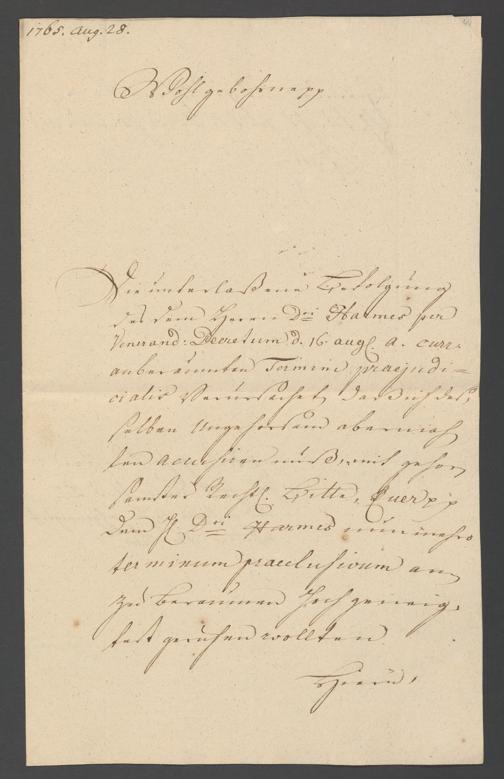 1765. Aug. 28.
Wohlgebohrne pp
Die unterlaßene Befolgung
des dem Herrn Dri Harmes per
Venerand: Decretum d. 16 aug. a. curr.
anberaumten Termini praejudi=
cialis verursachet, daß ich des=
selben Ungehorsam abermah
len accusiren muß, mit gehor
samster Rechtl. Bitte, Euer pp
dem H. Dri Harmes nunmehro
terminum praeclusivum an
zu beraumen hochgeneig=
test geruhen wollten.